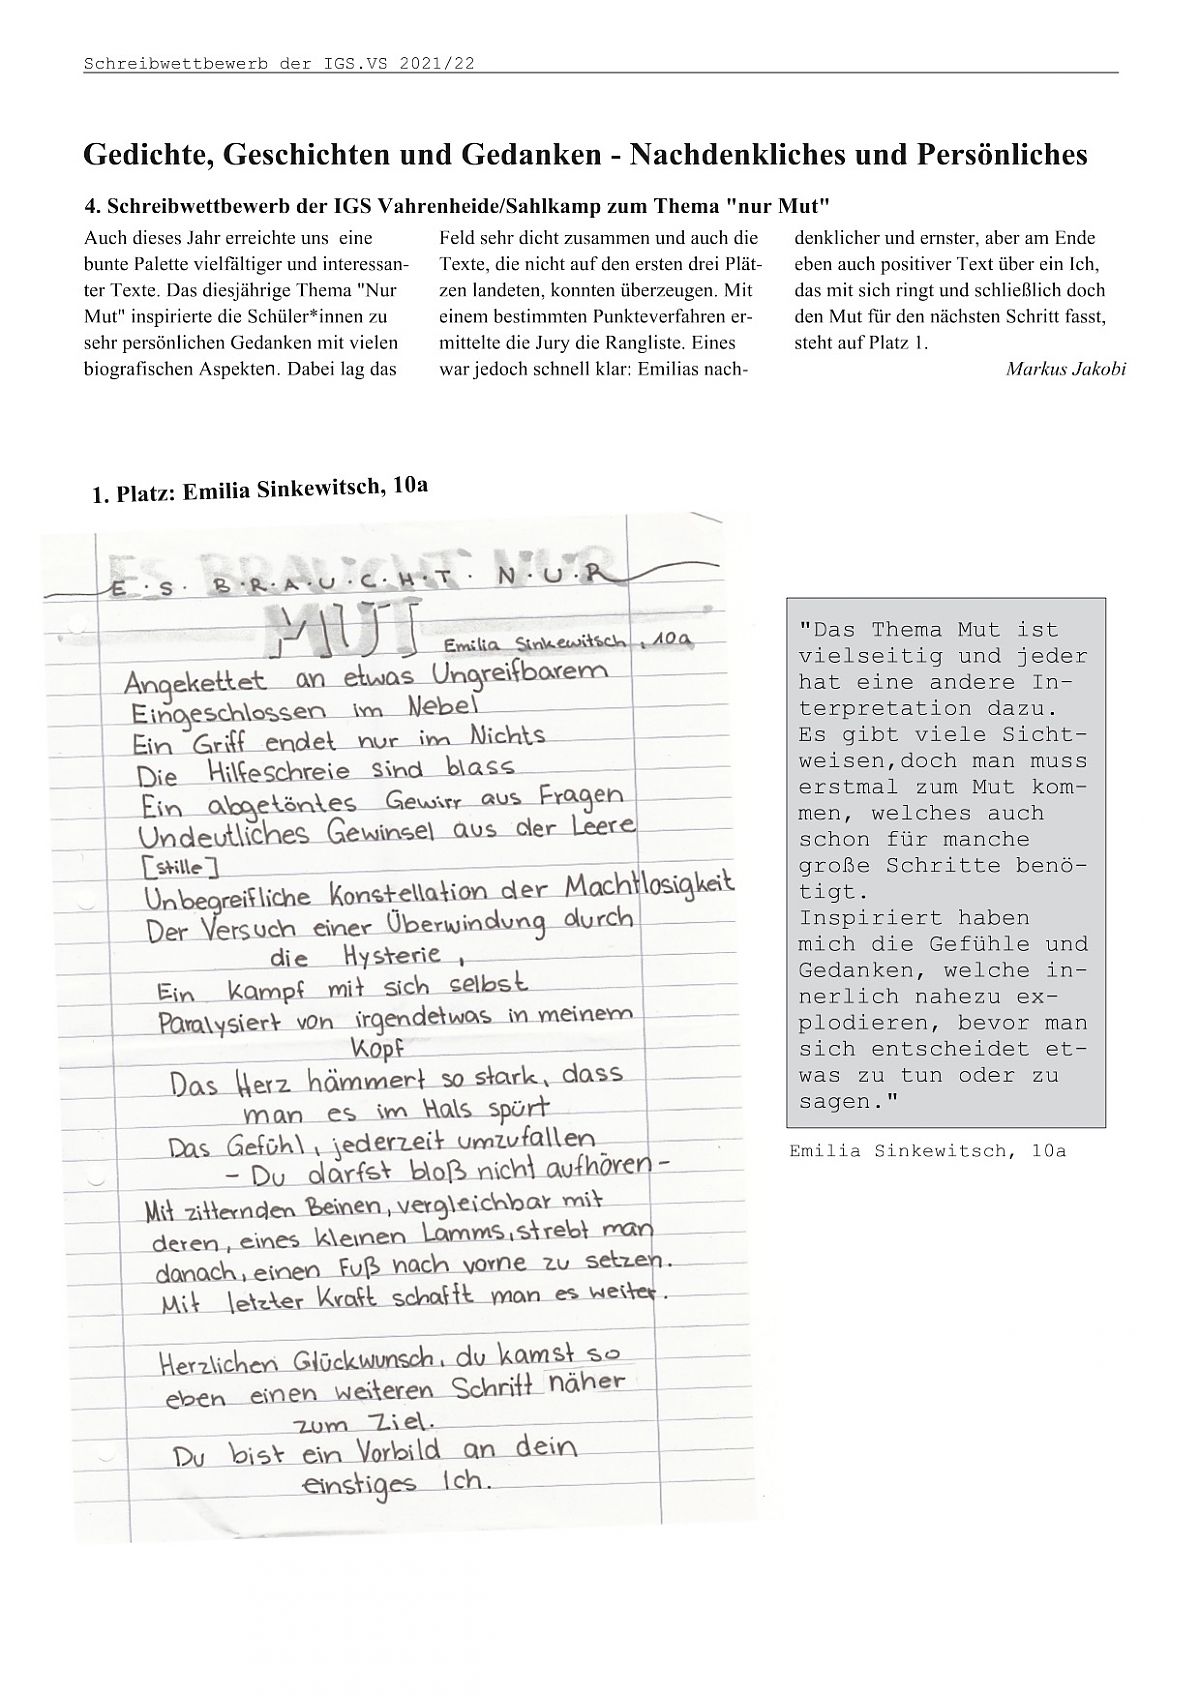 Schreibwettbewerb der IGS.VS 2021/22
Gedichte, Geschichten und Gedanken - Nachdenkliches und Persönliches
4. Schreibwettbewerb der IGS Vahrenheide/Sahlkamp zum Thema "nur Mut"
Auch dieses Jahr erreichte uns eine
bunte Palette vielfältiger und interessan-
ter Texte. Das diesjährige Thema "Nur
Mut" inspirierte die Schüler*innen zu
sehr persönlichen Gedanken mit vielen
biografischen Aspekten. Dabei lag das
Feld sehr dicht zusammen und auch die
Texte, die nicht auf den ersten drei Plät-
zen landeten, konnten überzeugen. Mit
einem bestimmten Punkteverfahren er-
mittelte die Jury die Rangliste. Eines
war jedoch schnell klar: Emilias nach-
denklicher und ernster, aber am Ende
eben auch positiver Text über ein Ich,
das mit sich ringt und schließlich doch
den Mut für den nächsten Schritt fasst,
steht auf Platz 1.
Markus Jakobi
1. Platz: Emilia Sinkewitsch, 10a
E.S. B.R.A.U.C.H.T. N.U.R
MUT
Emilia Sinkewitsch, 10a
Angekettet an etwas Ungreifbarem
Eingeschlossen im Nebel
Ein Griff endet nur im Nichts
Die Hilfeschreie sind blass
Ein abgetöntes Gewirr aus Fragen
Undeutliches Gewinsel aus der Leere
[stille]
Unbegreifliche Konstellation der Machtlosigkeit
Der Versuch einer Überwindung durch
die Hysterie,
Ein Kampf mit sich selbst
Paralysiert von irgendetwas in meinem
Kopf
Das Herz hämmert so stark, dass
man es im Hals spürt
Das Gefühl, jederzeit umzufallen
- Du darfst bloß nicht aufhören -
Mit zitternden Beinen, vergleichbar mit
deren, eines kleinen Lamms, strebt man
danach, einen Fuß nach vorne zu setzen.
Mit letzter Kraft schafft man es weiter.
Herzlichen Glückwunsch, du kamst so
eben einen weiteren Schritt näher
zum Ziel.
Du bist ein Vorbild an dein
einstiges Ich.
"Das Thema Mut ist
vielseitig und jeder
hat eine andere In-
terpretation dazu.
Es gibt viele Sicht-
weisen,doch man muss
erstmal zum Mut kom-
men, welches auch
schon für manche
große Schritte benö-
tigt.
Inspiriert haben
mich die Gefühle und
Gedanken, welche in-
nerlich nahezu ex-
plodieren, bevor man
sich entscheidet et-
was zu tun oder zu
sagen."
Emilia Sinkewitsch, 10a